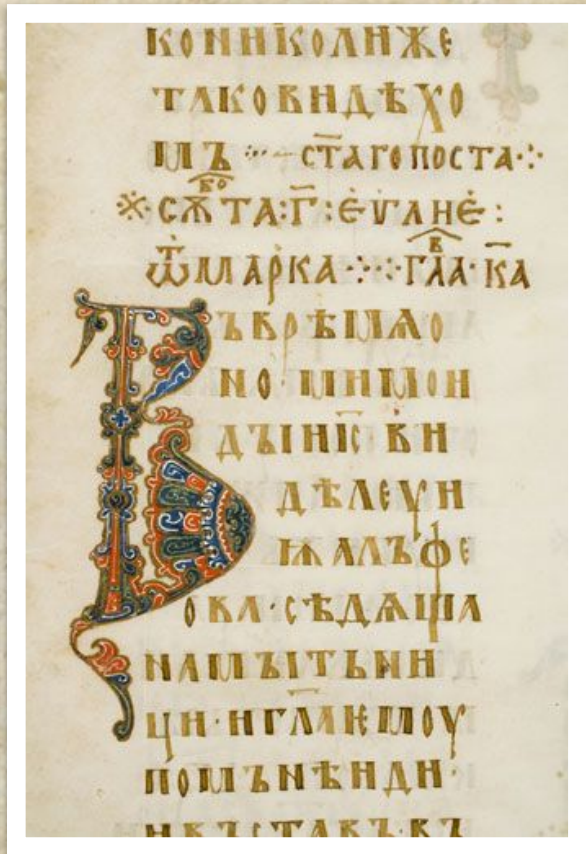 КОНИКОЛИЖЕ
ТАКОВИДѢХО
МЪ ·:·– СТ҃АГОПОСТА·:·
※·СѪБОТА:Г҃:ЕѴГЛИЕ:
ѾМАРКА·:·:·ГЛ҃АВ·К҃А
ВЪВРѢМѦО
НО·МИМОИ
ДЪІИІС҃ ВИ
ДѢЛЕѴИ
ѬАЛЪФЕ
ОВА·СѢДѦЩА
НАМЪІТЬНИ
ЦИ·ИГЛ҃АѤМОУ
ПОМЪНѢИДИ·
ИВЪСТАВЪ·ВЪ